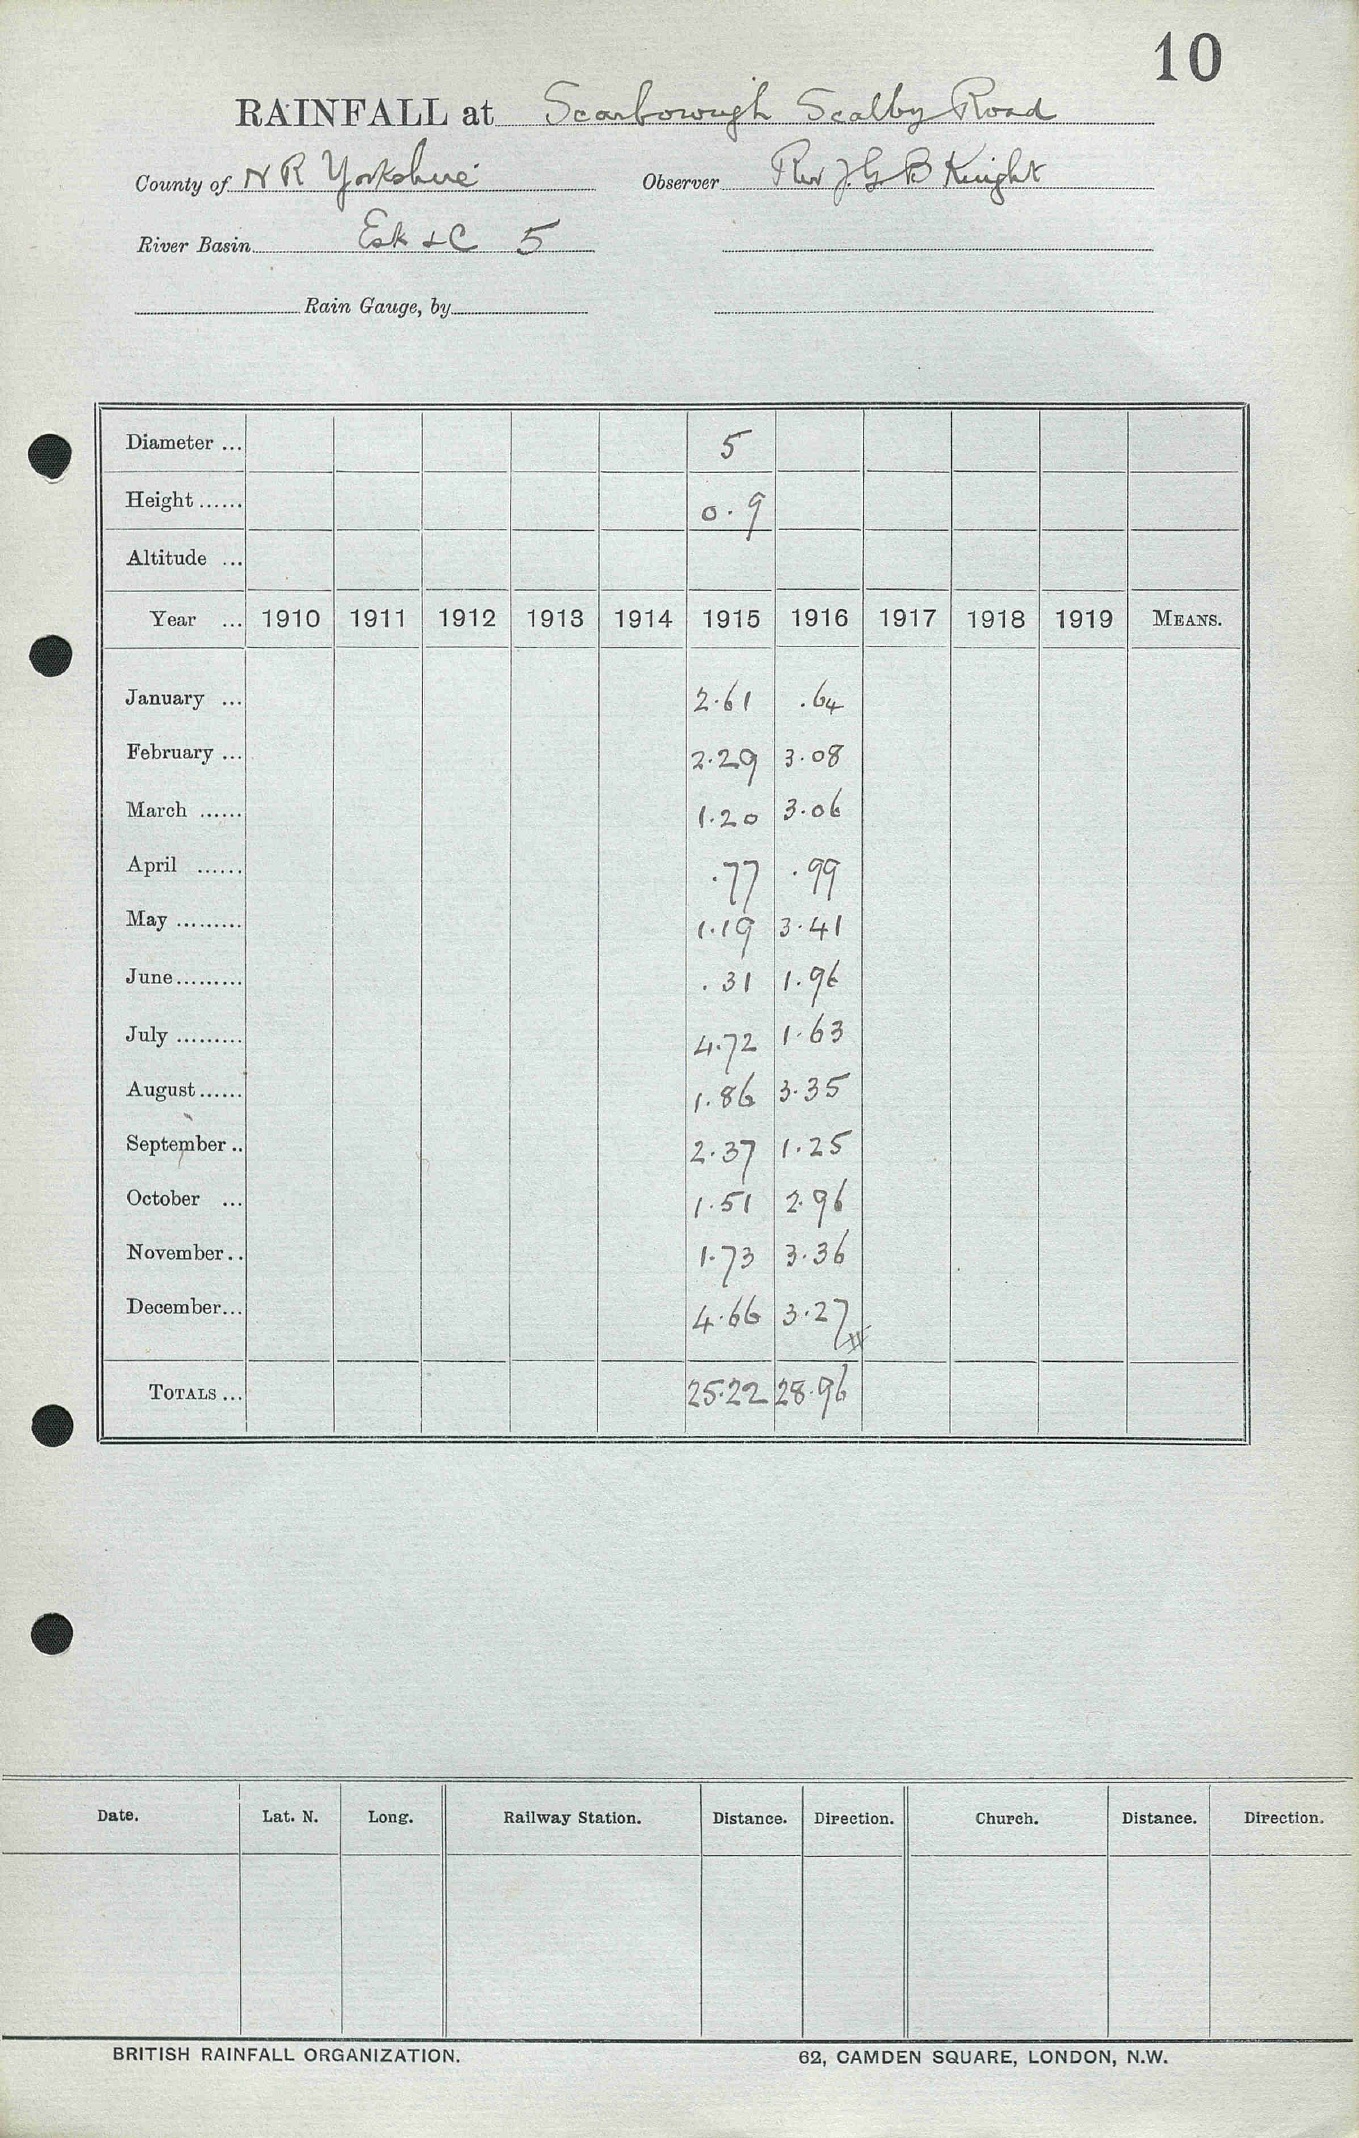 10
RAINFALL at Scarborough Scalby Road
County of N R Yorkshire Observer Rev J. G. B Knight
River Basin Esk & C 5
Rain Gauge, by
Diameter ... 5
Height ...... 0.9
Altitude ...
Year ... 1910 1911 1912 1913 1914 1915 1916 1917 1918 1919 MEANS.
January ... 2.61 .64
February ... 2.29 3.08
March ...... 1.20 3.06
April ...... .77 .99
May ......... 1.19 3.41
June ......... .31 1.96
July ......... 4.72 1.63
August ...... 1.86 3.35
September .. 2.37 1.25
October ... 1.51 2.96
November .. 1.73 3.36
December ... 4.66 3.27
TOTALS ... 25.22 28.96
Date. Lat. N. Long. Railway Station. Distance. Direction. Church. Distance. Direction.
BRITISH RAINFALL ORGANIZATION. 62, CAMDEN SQUARE, LONDON, N.W.